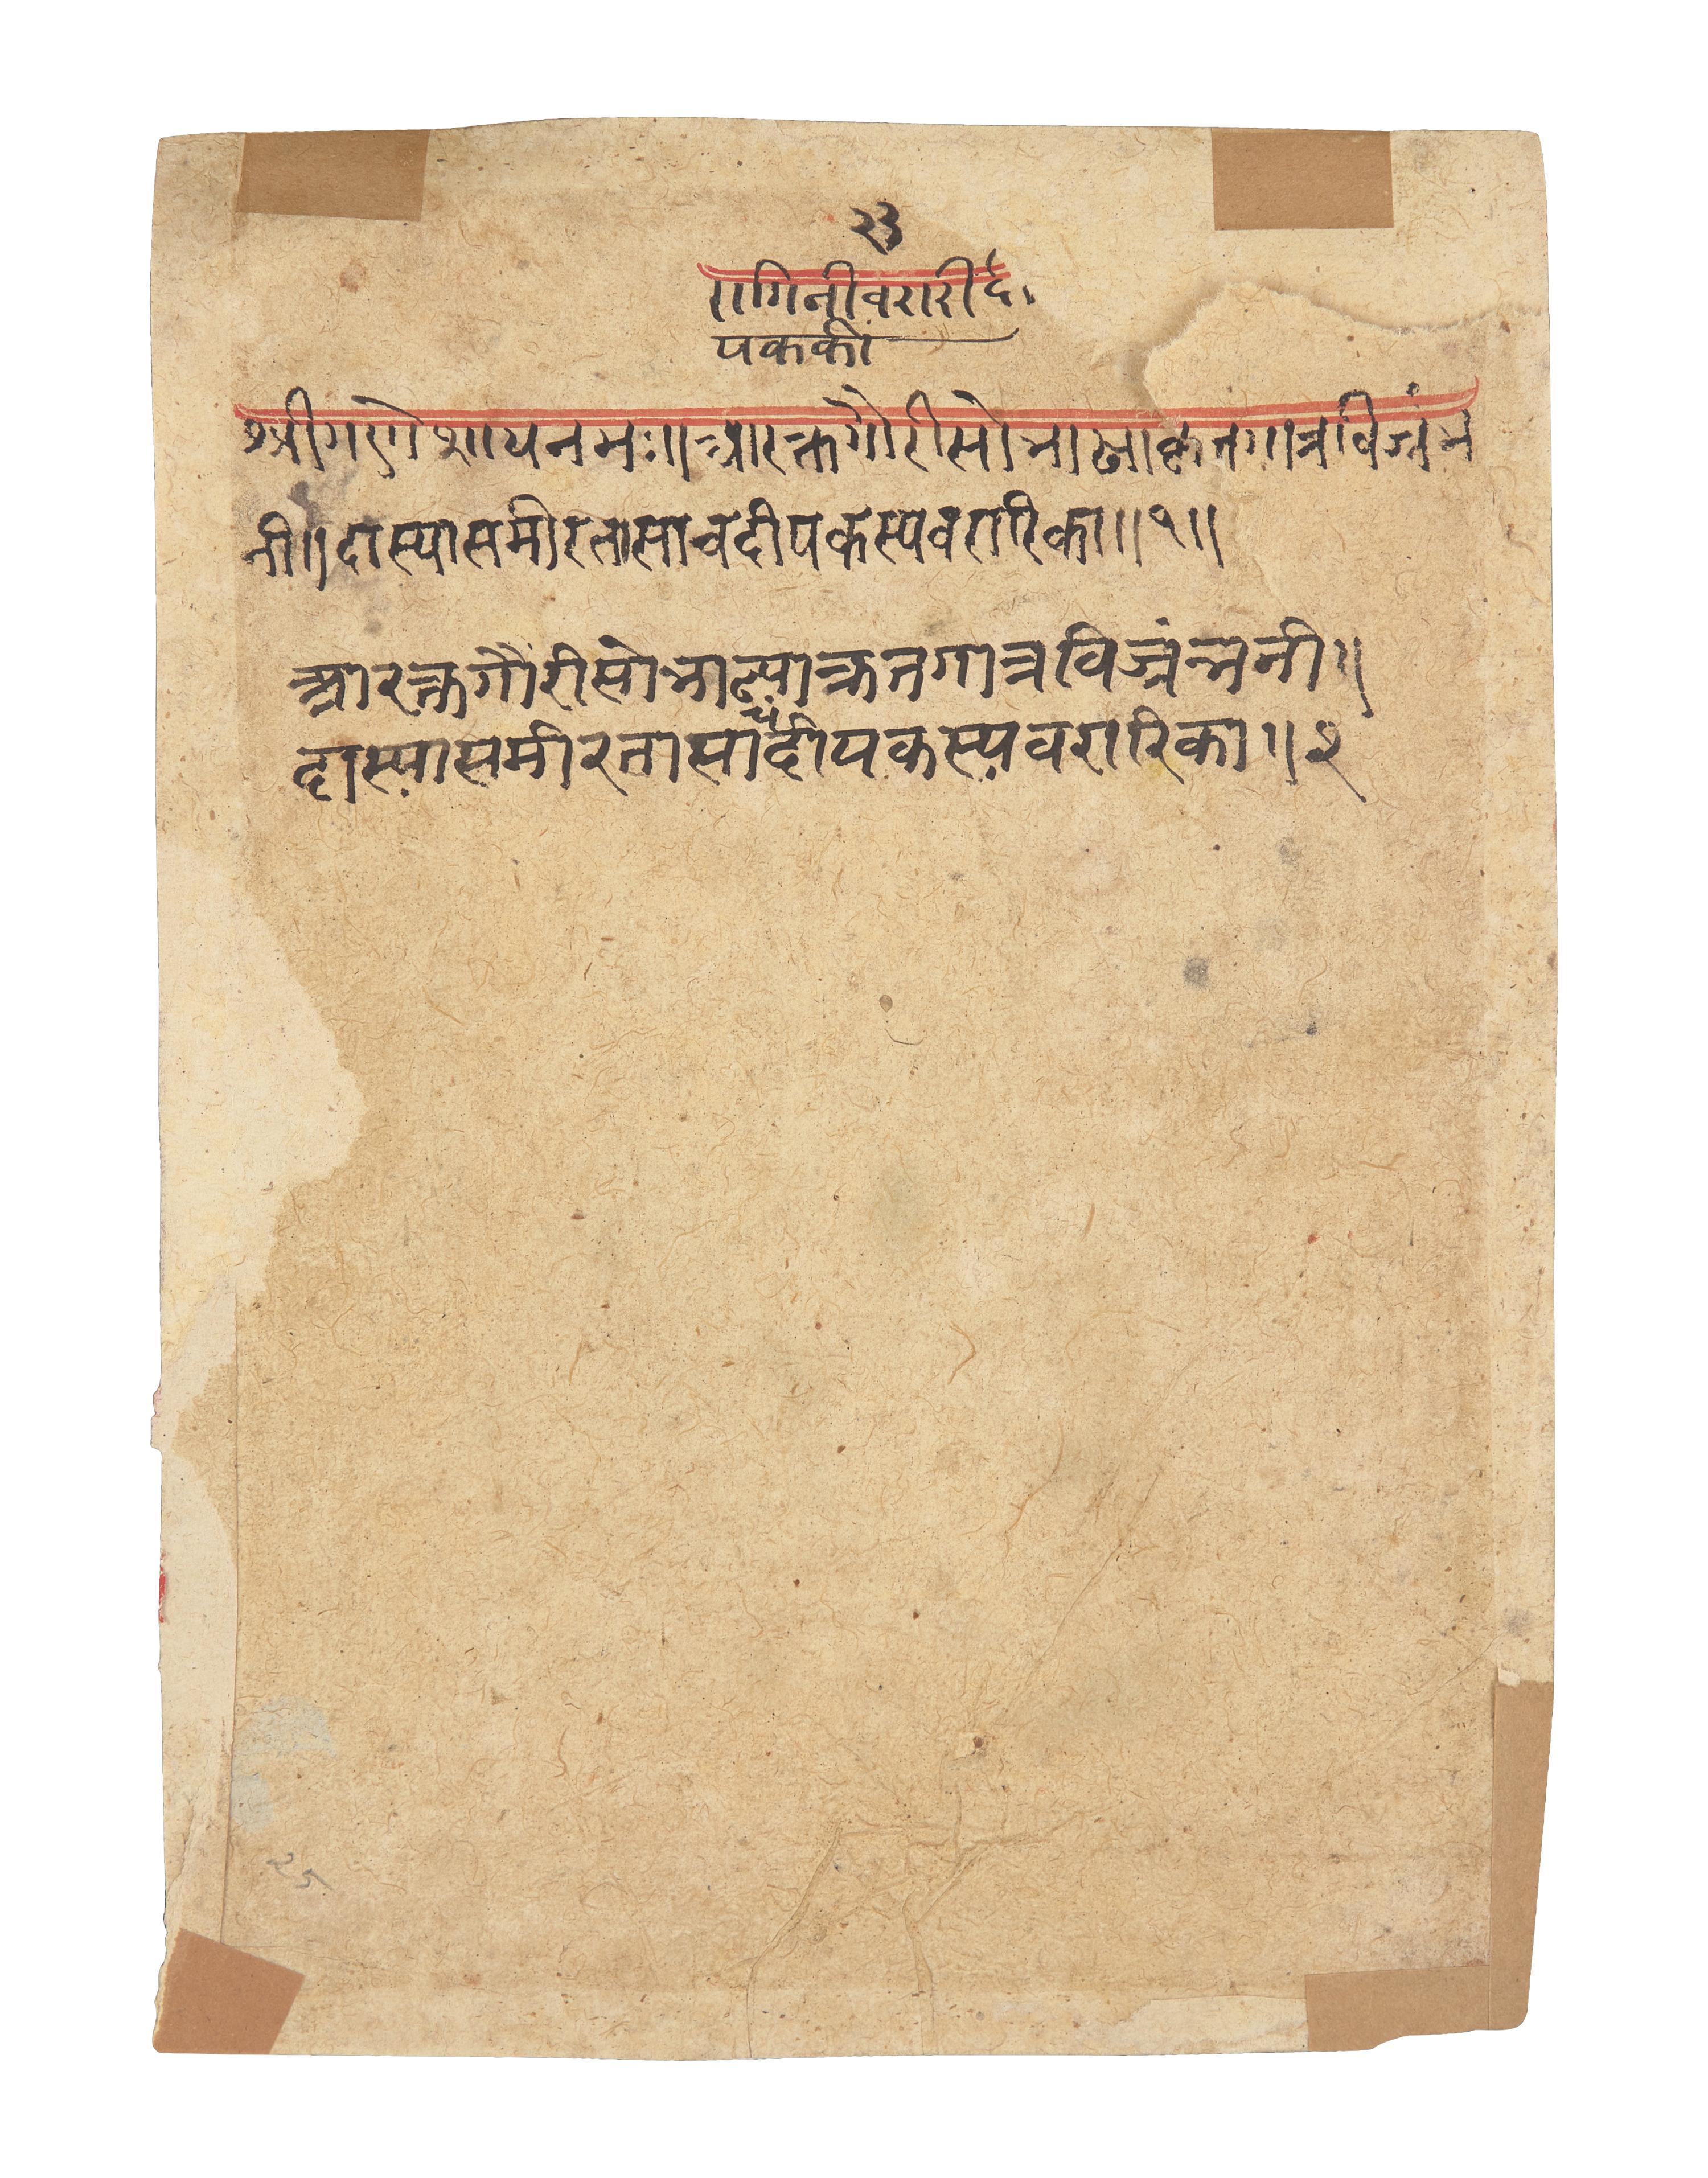 २३
रागिनीवरारीदी
पककी
श्रीगणेशायनमः॥आरक्तगौरीसोभाख्याकृतगात्रविजृंभ
नी॥दास्यासमीरतासाचदीपकस्यवरारिका॥१॥
आरक्तगौरीसोभाख्याकृतगात्रविजृंभनी॥
दास्यासमीरतासाचदीपकस्यवरारिका॥२
२५